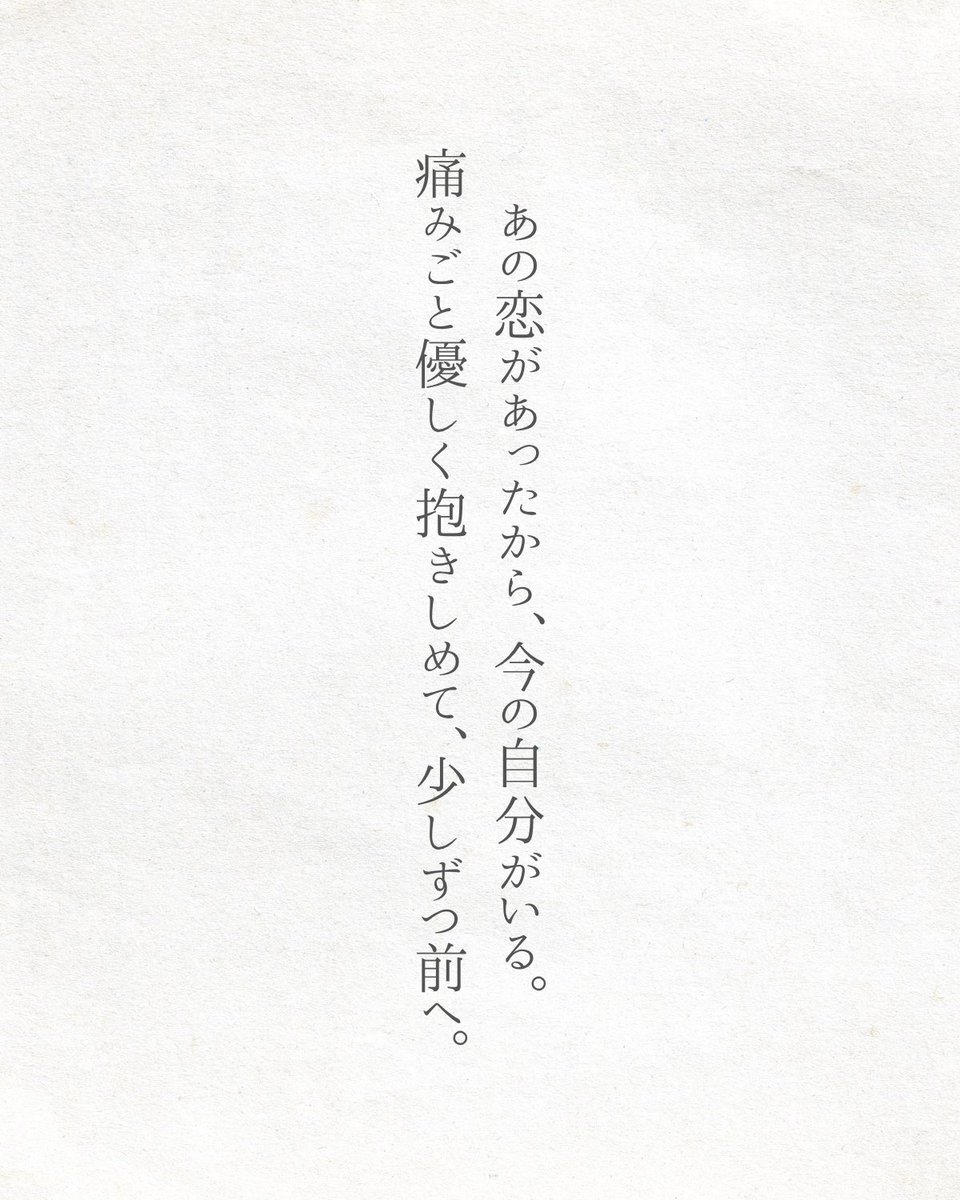 あの恋があったから、今の自分がいる。
痛みごと優しく抱きしめて、少しずつ前へ。